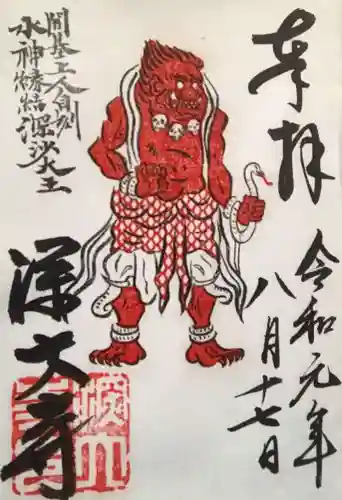 奉拝
令和元年
八月十七日
開基上人自刻
水神深沙大王
深大寺